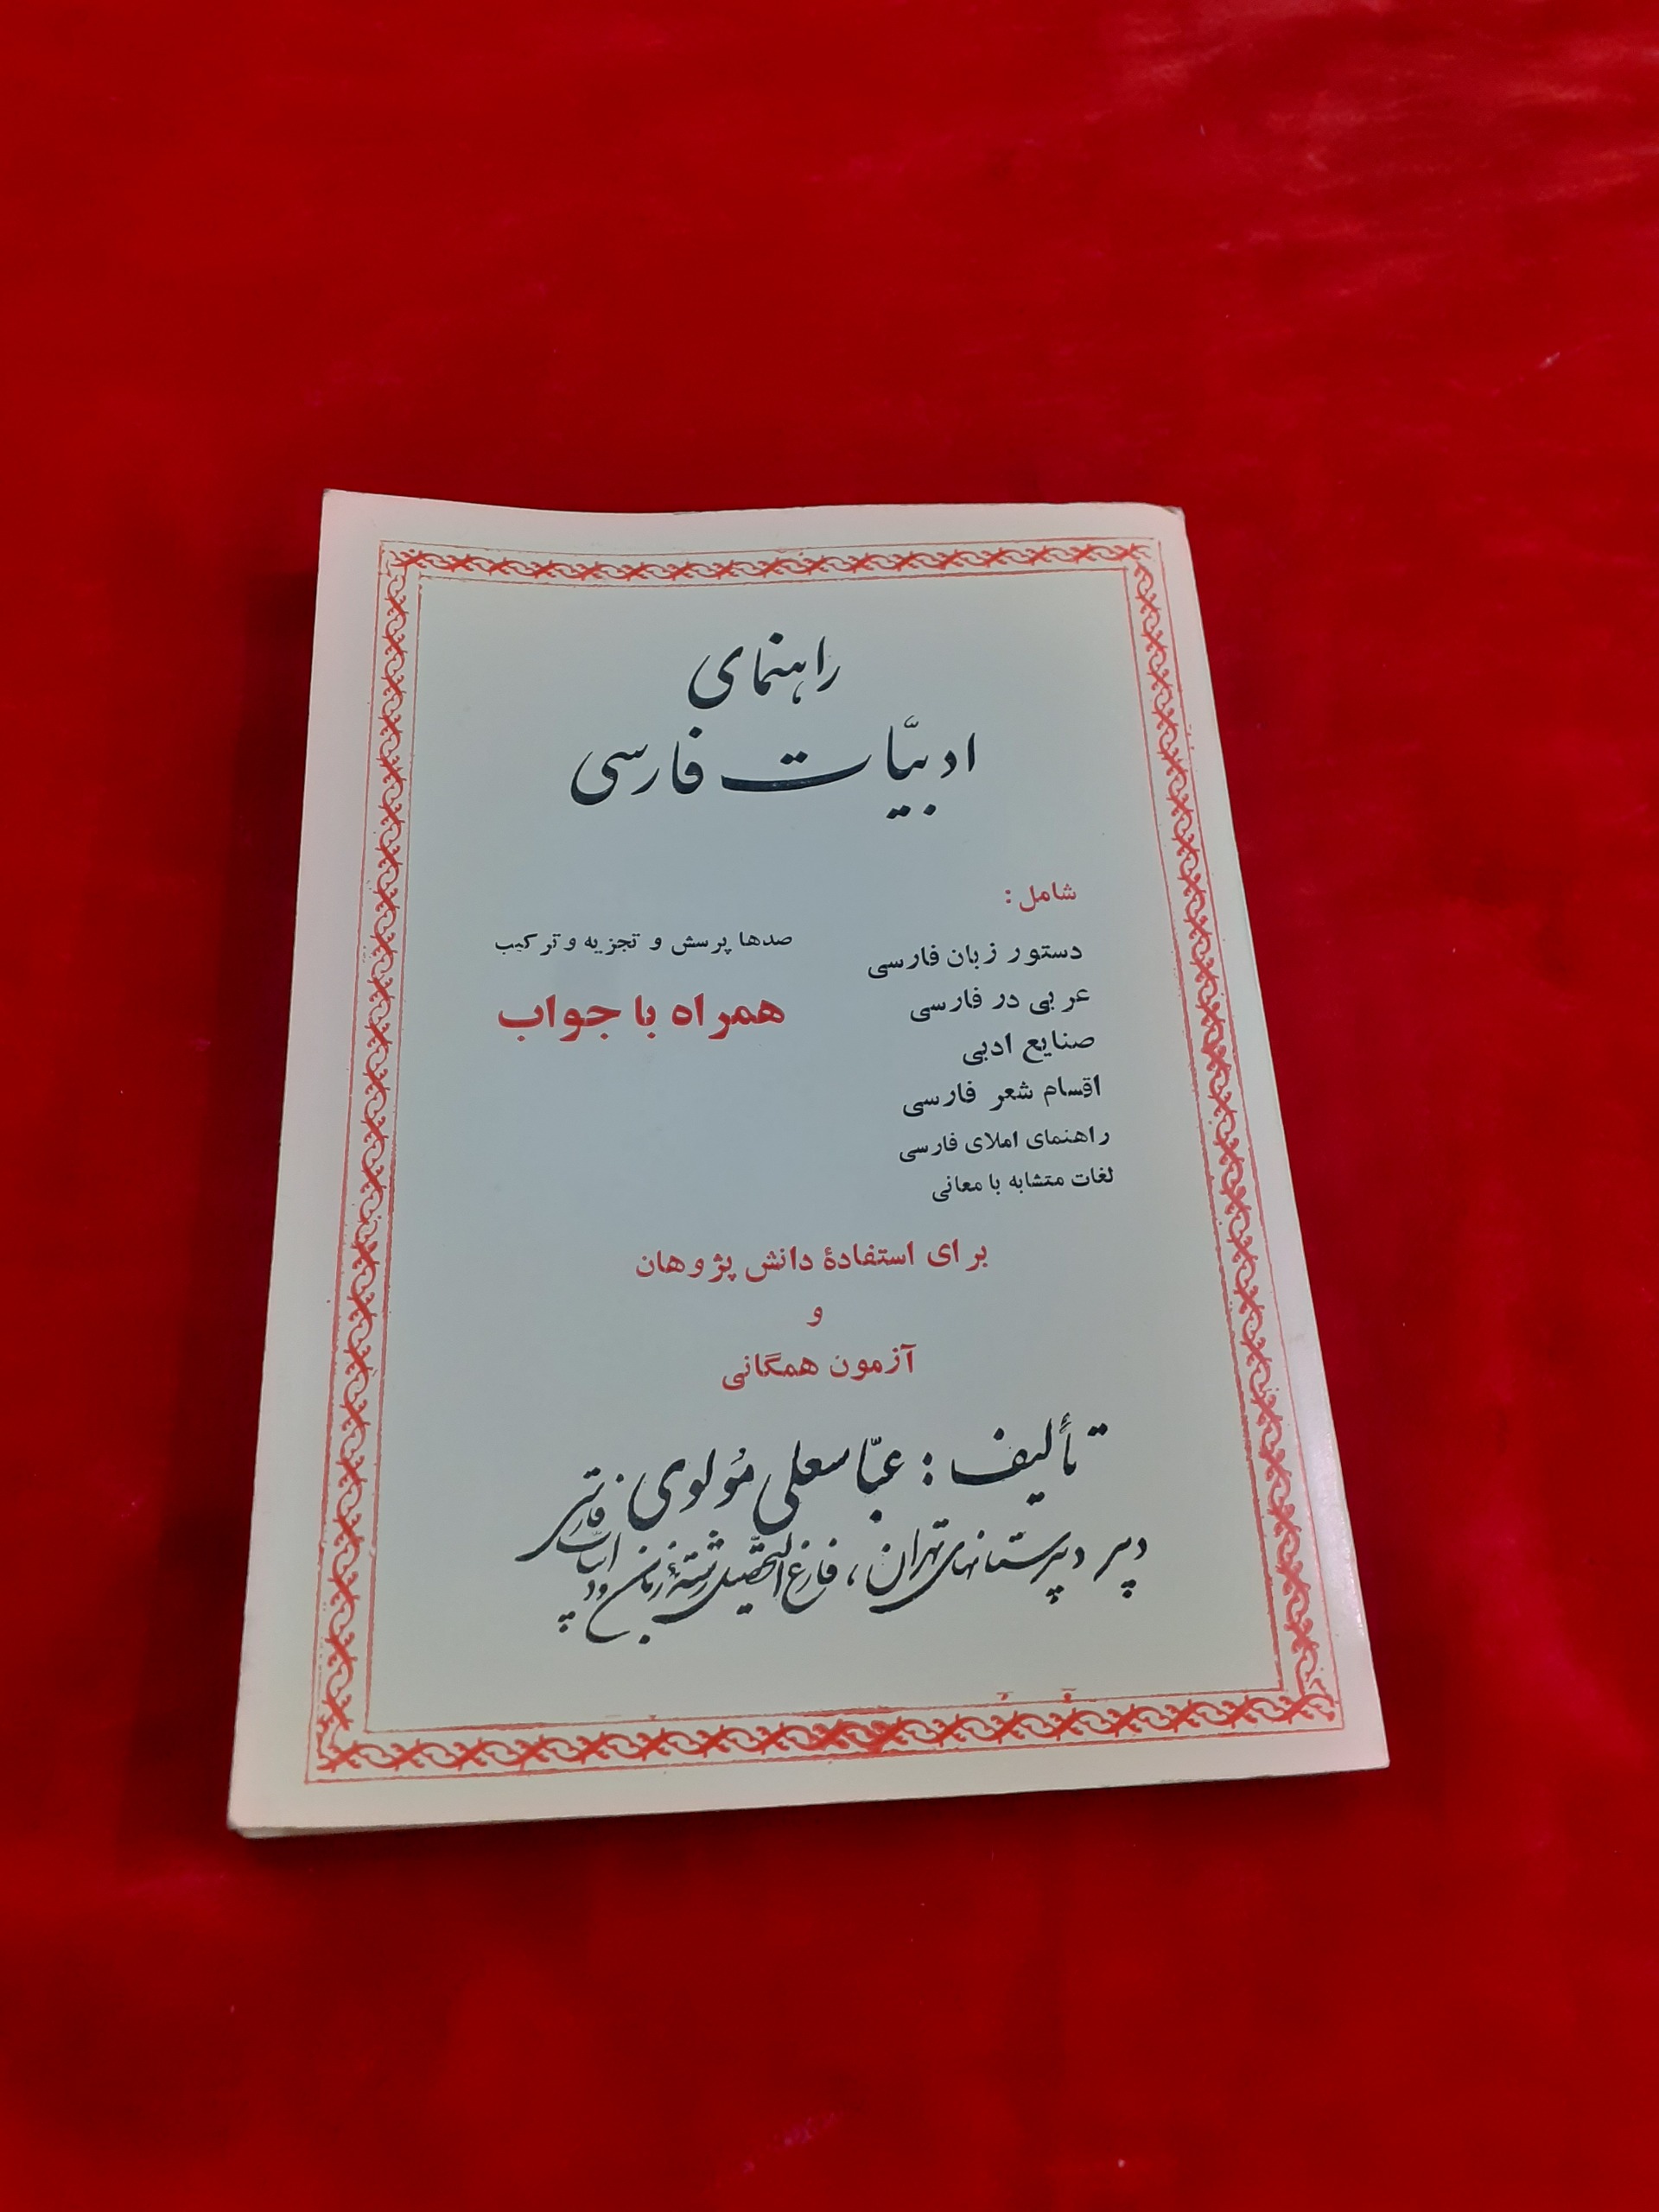 راهنمای
ادبیّات فارسی
شامل:
دستور زبان فارسی
عربی در فارسی
صنایع ادبی
اقسام شعر فارسی
راهنمای املای فارسی
لغات متشابه با معانی
صدها پرسش و تجزیه و ترکیب
همراه با جواب
برای استفادهٔ دانش پژوهان
و
آزمون همگانی
تألیف: عبّاسعلی مولوی
دبیر دبیرستانهای تهران، فارغ التحصیل رشتهٔ زبان و ادبیات فارسی